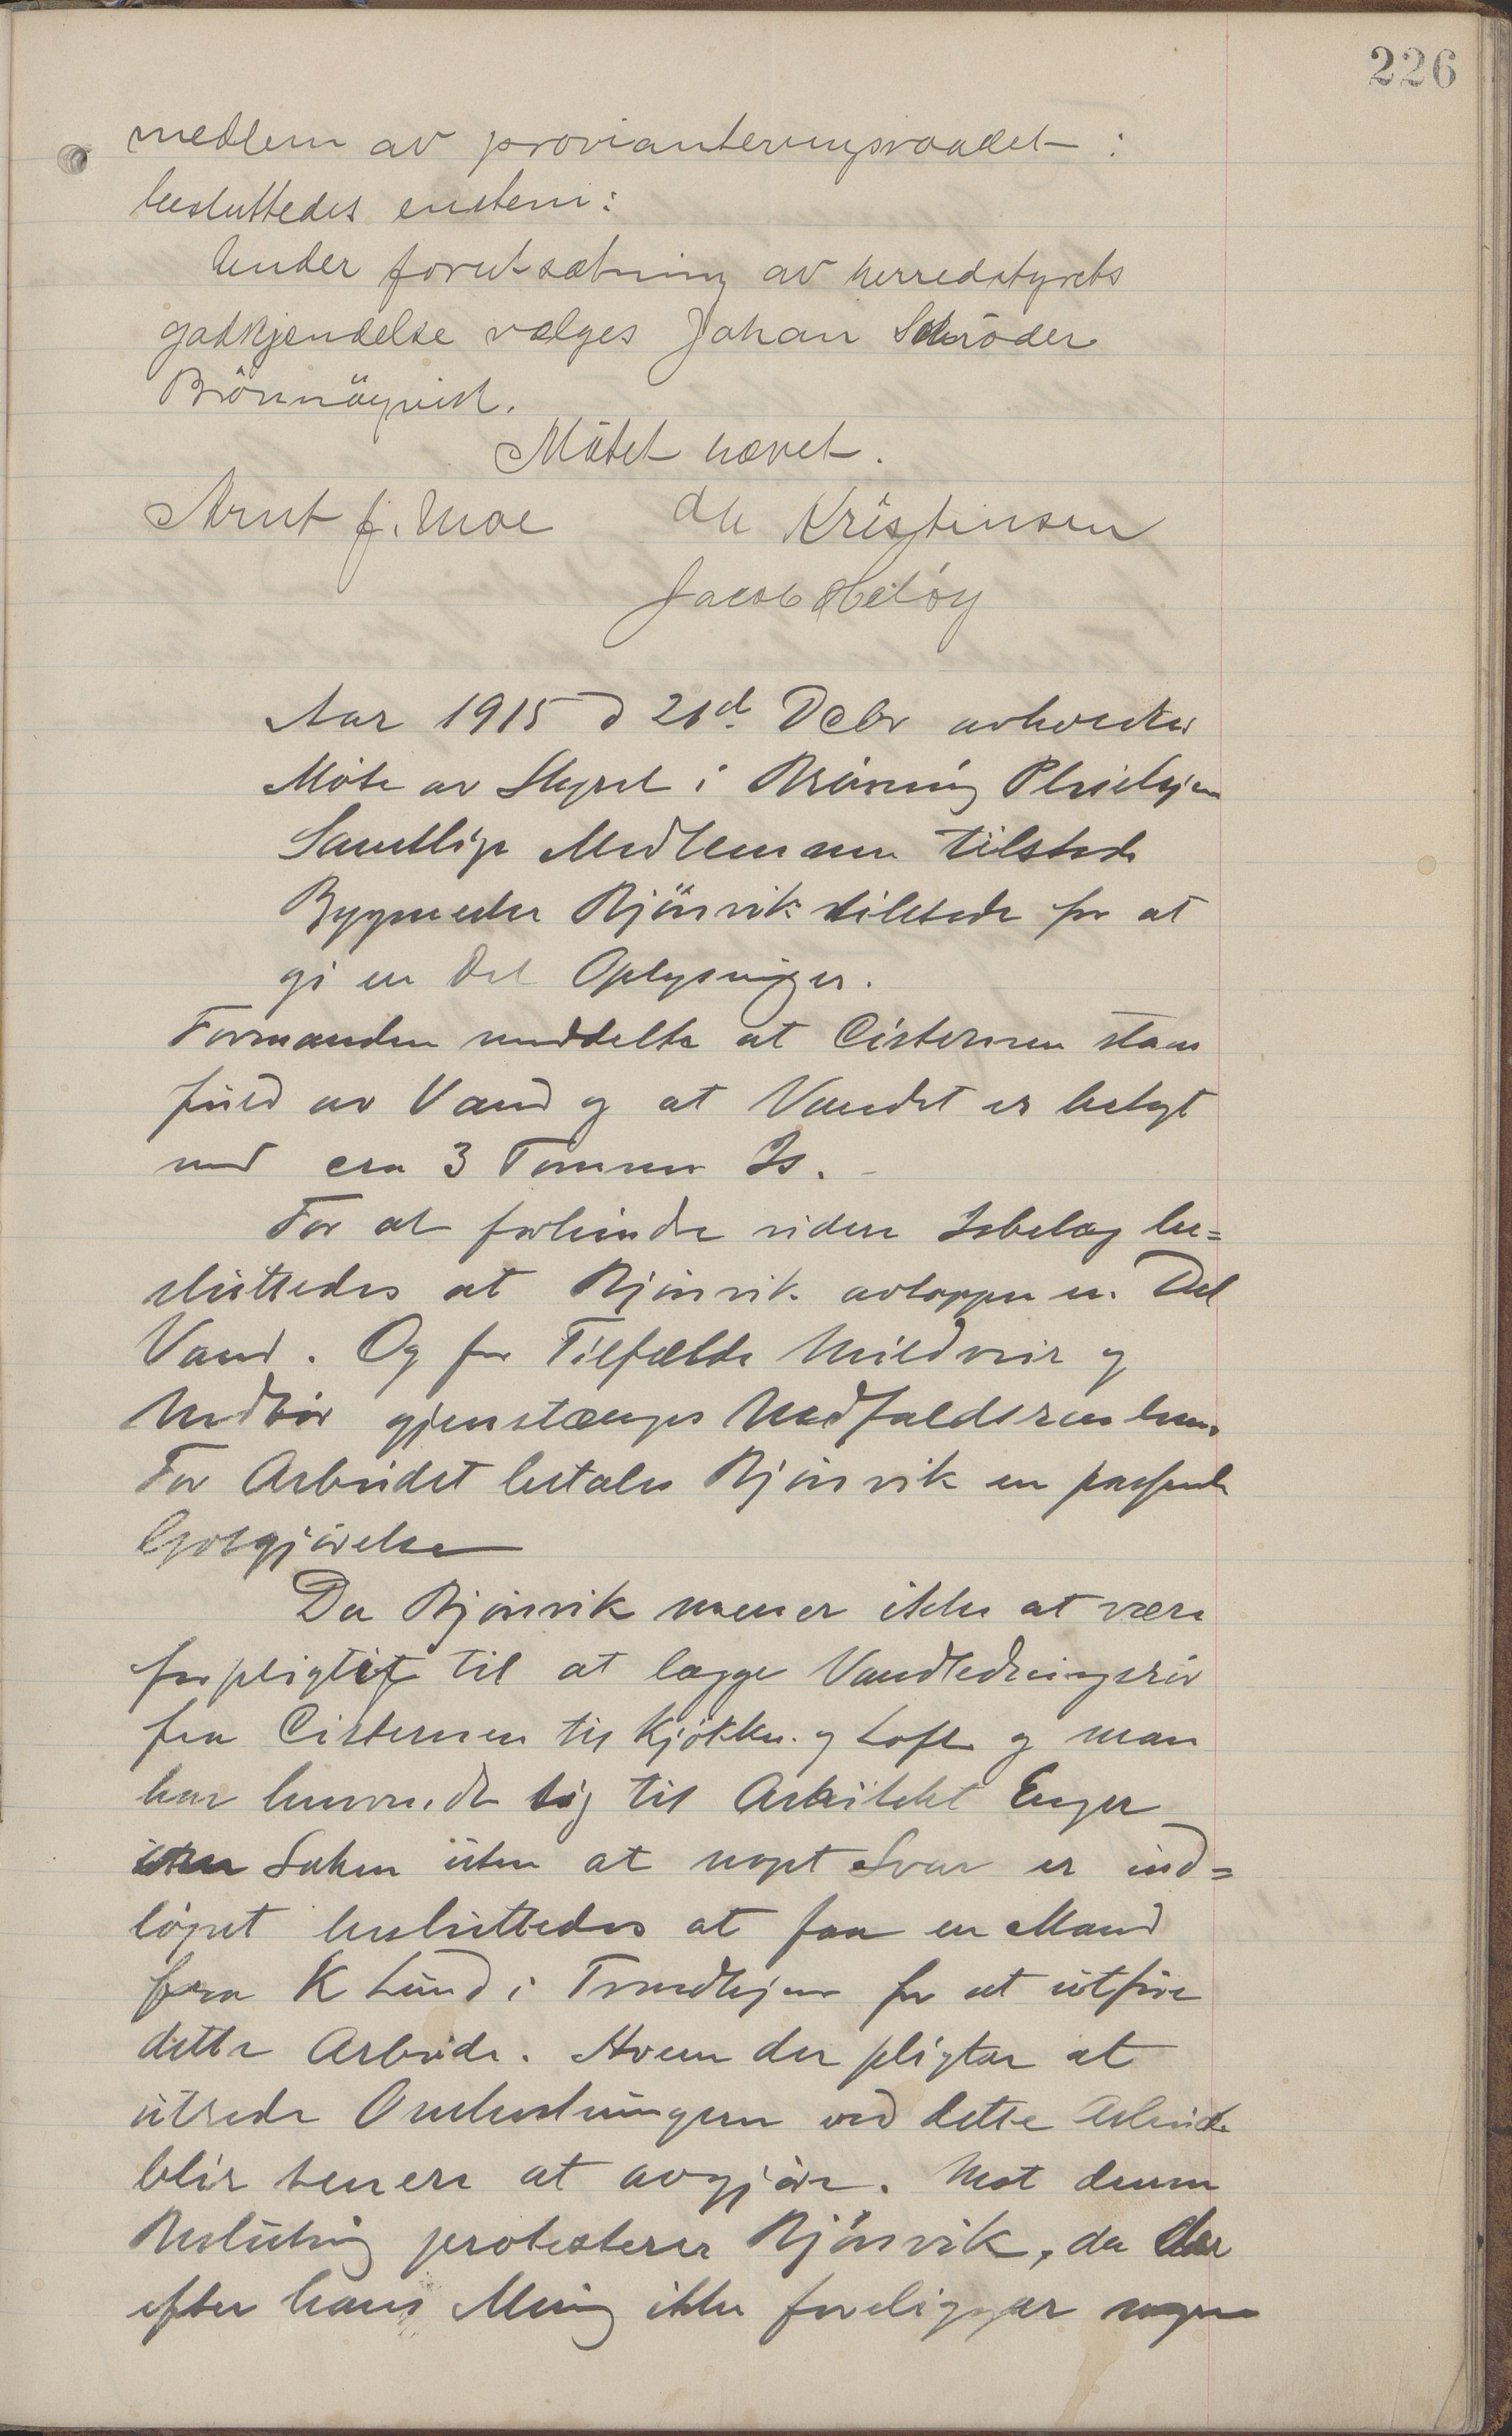 226
medlem av provianteringsraadet :
besluttedes enstem:
Under forutsætning av herredstyrets
godkjendelse vælges Johan Schrøder
Brönnöysund.
Mötet hævet.
Arnt J. Moe Ole Kristensen
Jacob Heløy
Aar 1915 d 21d Decbr avholdtes
Möte av Styret i Brönnöy Pleiehjem
Samtlige Medlemmer tilstede
Bygmester Bjönvik tilstede for at
gi en Del Oplysninger.
Formanden meddelte at Cisternen staar
fuld av Vand og at Vandet er belagt
med cra 3 Tommer Is. -
For at forhindre videre Isbelæg be=
sluttedes at Bjönvik avtapper en Del
Vand. Og for Tilfælde Mildveir og
Nedbör gjenstænges Nedfaldsrenderne.
For Arbeidet betales Bjönvik en passende
Godtgjörelse
Da Bjönvik mener ikke at være
forpligtet til at lægge Vandledningsrör
fra Cisternen til Kjökken og Loft og man
har henvendt sig til Arkitekt Enger
om Saken uten at noget Svar er ind=
löpet besluttedes at faa en Mand
fra K Lund i Trondhjem for at utföre
dette Arbeide. Hvem der pligter at
utrede Omkostningerne ved dette Arbeide
blir senere at avgjöre. Mot denne
Beslutning protesterer Bjönvik, da der
efter hans Mening ikke foreligger nogen